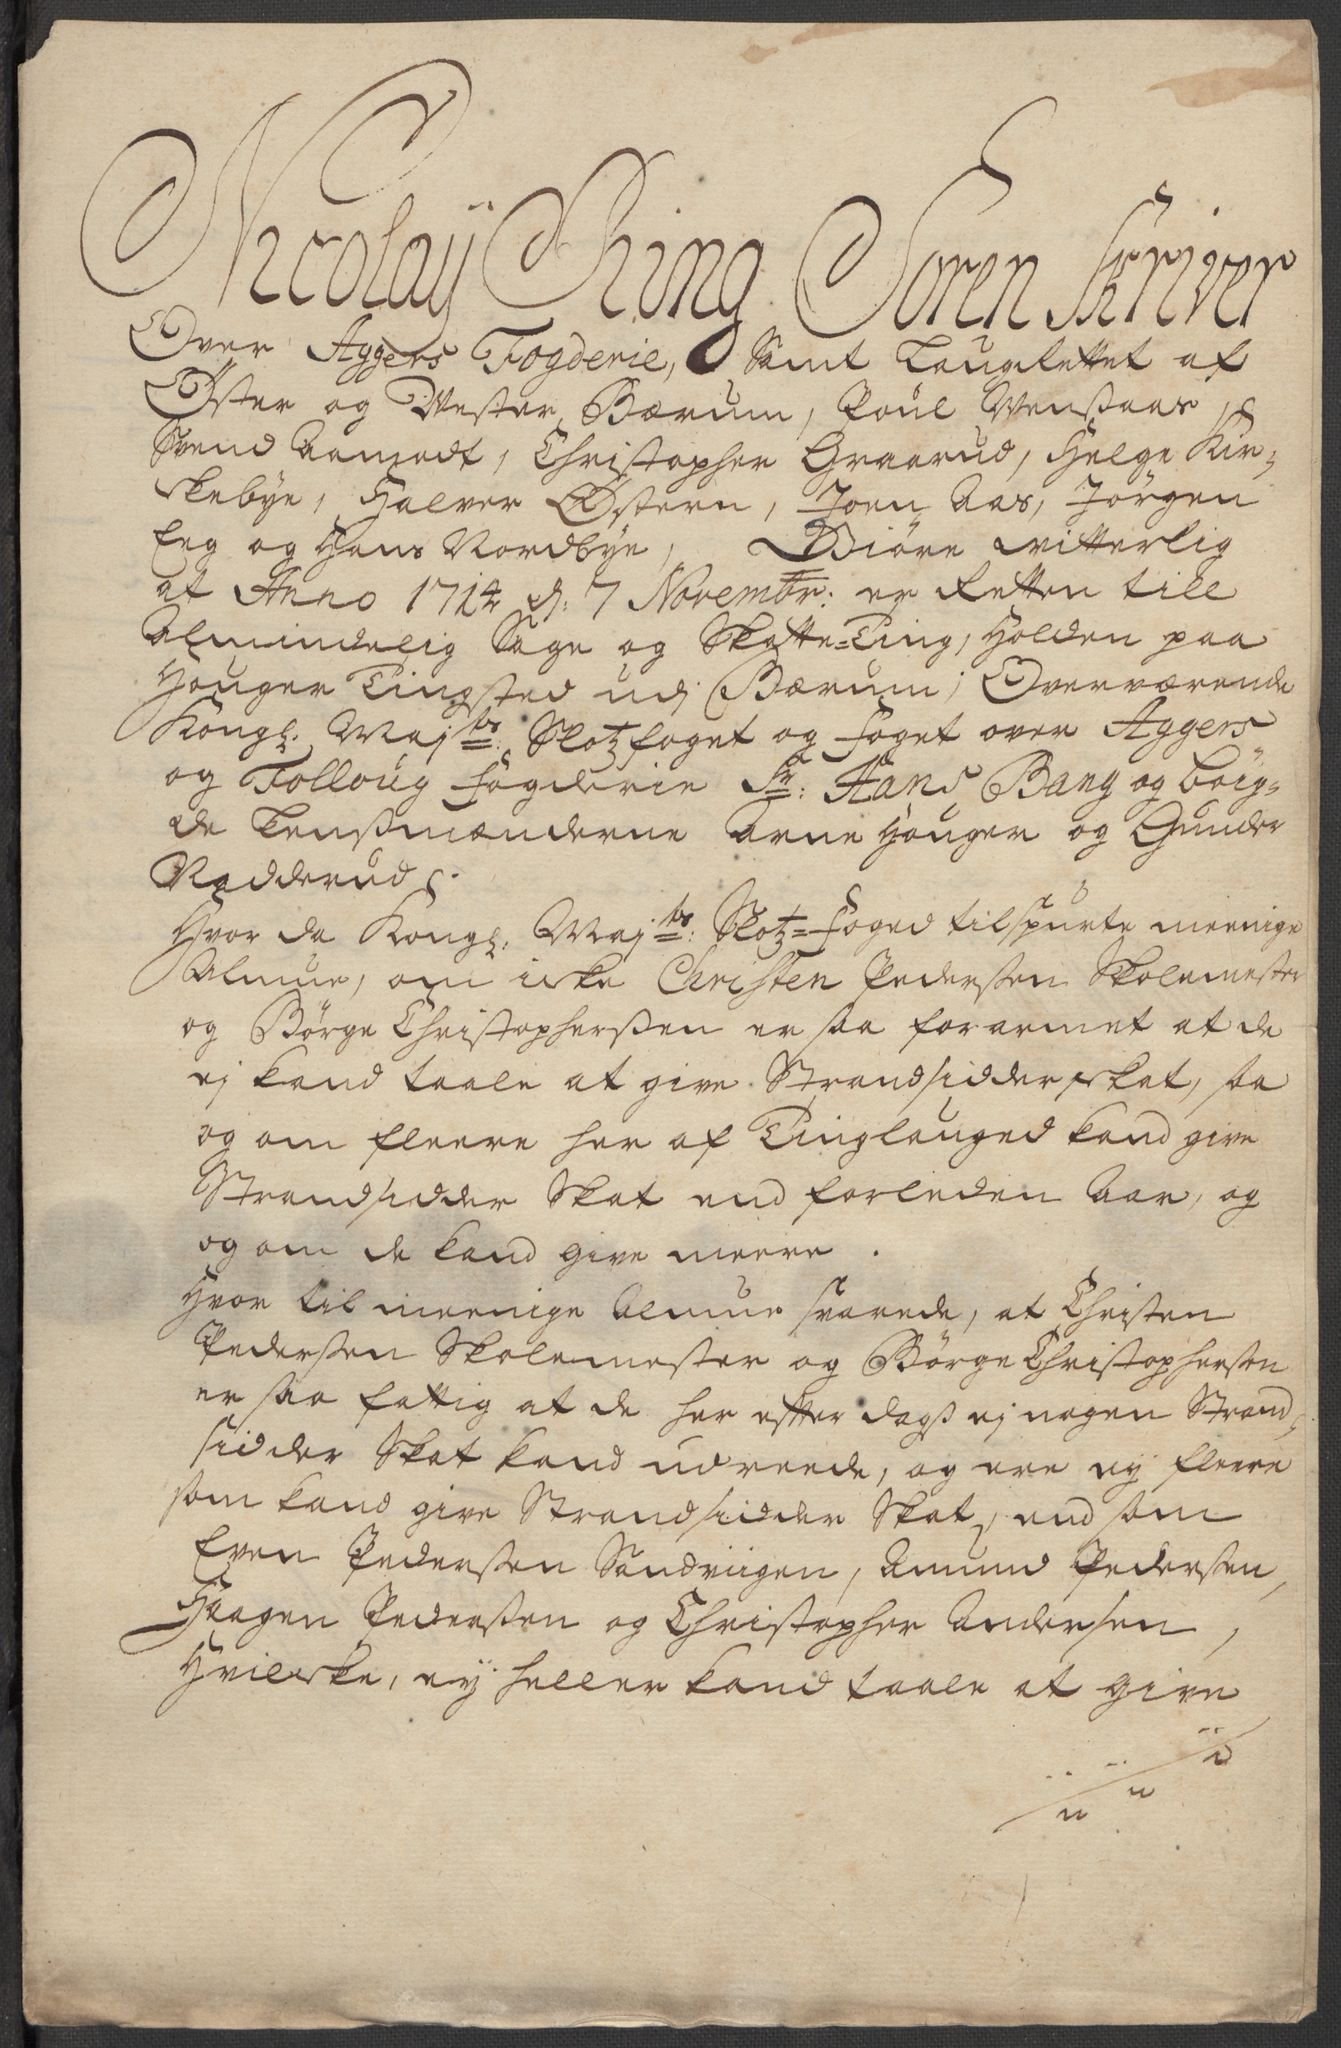 Nicolaÿ Ring Soren Skriver
Over Aggers Fogderie, Samt Laugrettet af
Øster og Vester Bærum, Poul Wenßaas,
Svend Aamodt, Christopher Graarud, Helge Kir-
kebye, Halvor Østern, Joen Aas, Jörgen
Eeg og Hans Nordbye, Giöre vitterlig
at Anno 1714 d: 7 Novembr: er Retten till
Almindelig Sage og Skatte-Ting, Holden paa
Houger Tingsted udj Bærum, Overværende
Kongl: Majts: Slotzfoget og foget over Aggers
og Folloug fogderie Sr: Hans Bang og böig-
de Lensmænderne Arne Houger og Gunder
Nadderud.
Hvor da Kongl: Majts: Slotz-foged tilspurte meenige
Almue, om icke Christen Pedersen Skolemester
og Börge Christophersen er saa forarmet at de
ej kand taale at give Strandsidder skat, saa
og om fleere her af Tinglauged kand give
Strandsidder Skat end forleden Aar, og
og om de kand give meere.
Hvor til meenige Almue svarede, at Christen
Pedersen Skolemester og Börge Christophersen
er saa fattig at de her efter dags ej nogen Strand-
sidder Skat kand udreede, og ere ey fleere
som kand give Strandsidder Skat, end som
Even Pedersen Sandviigen, Amund Pedersen,
Haagen Pedersen og Christopher Andersen,
Hvilcke, eÿ heller kand taale at give